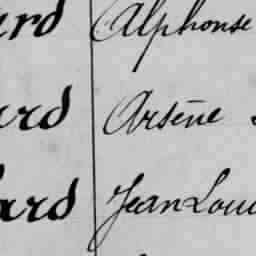 ard Alphonse
ard Arsène
ard Jean Loui